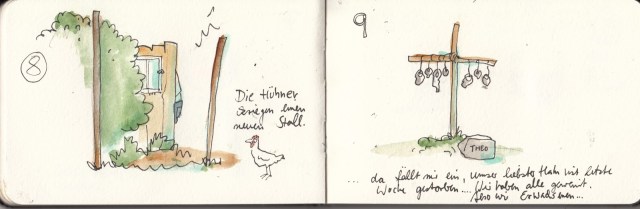 8
Die Hühner
kriegen einen
neuen Stall.
9
THEO
... da fällt mir ein, unser liebster Hahn ist letzte
Woche gestorben... Wir haben alle geweint.
Also wir Erwachsenen...